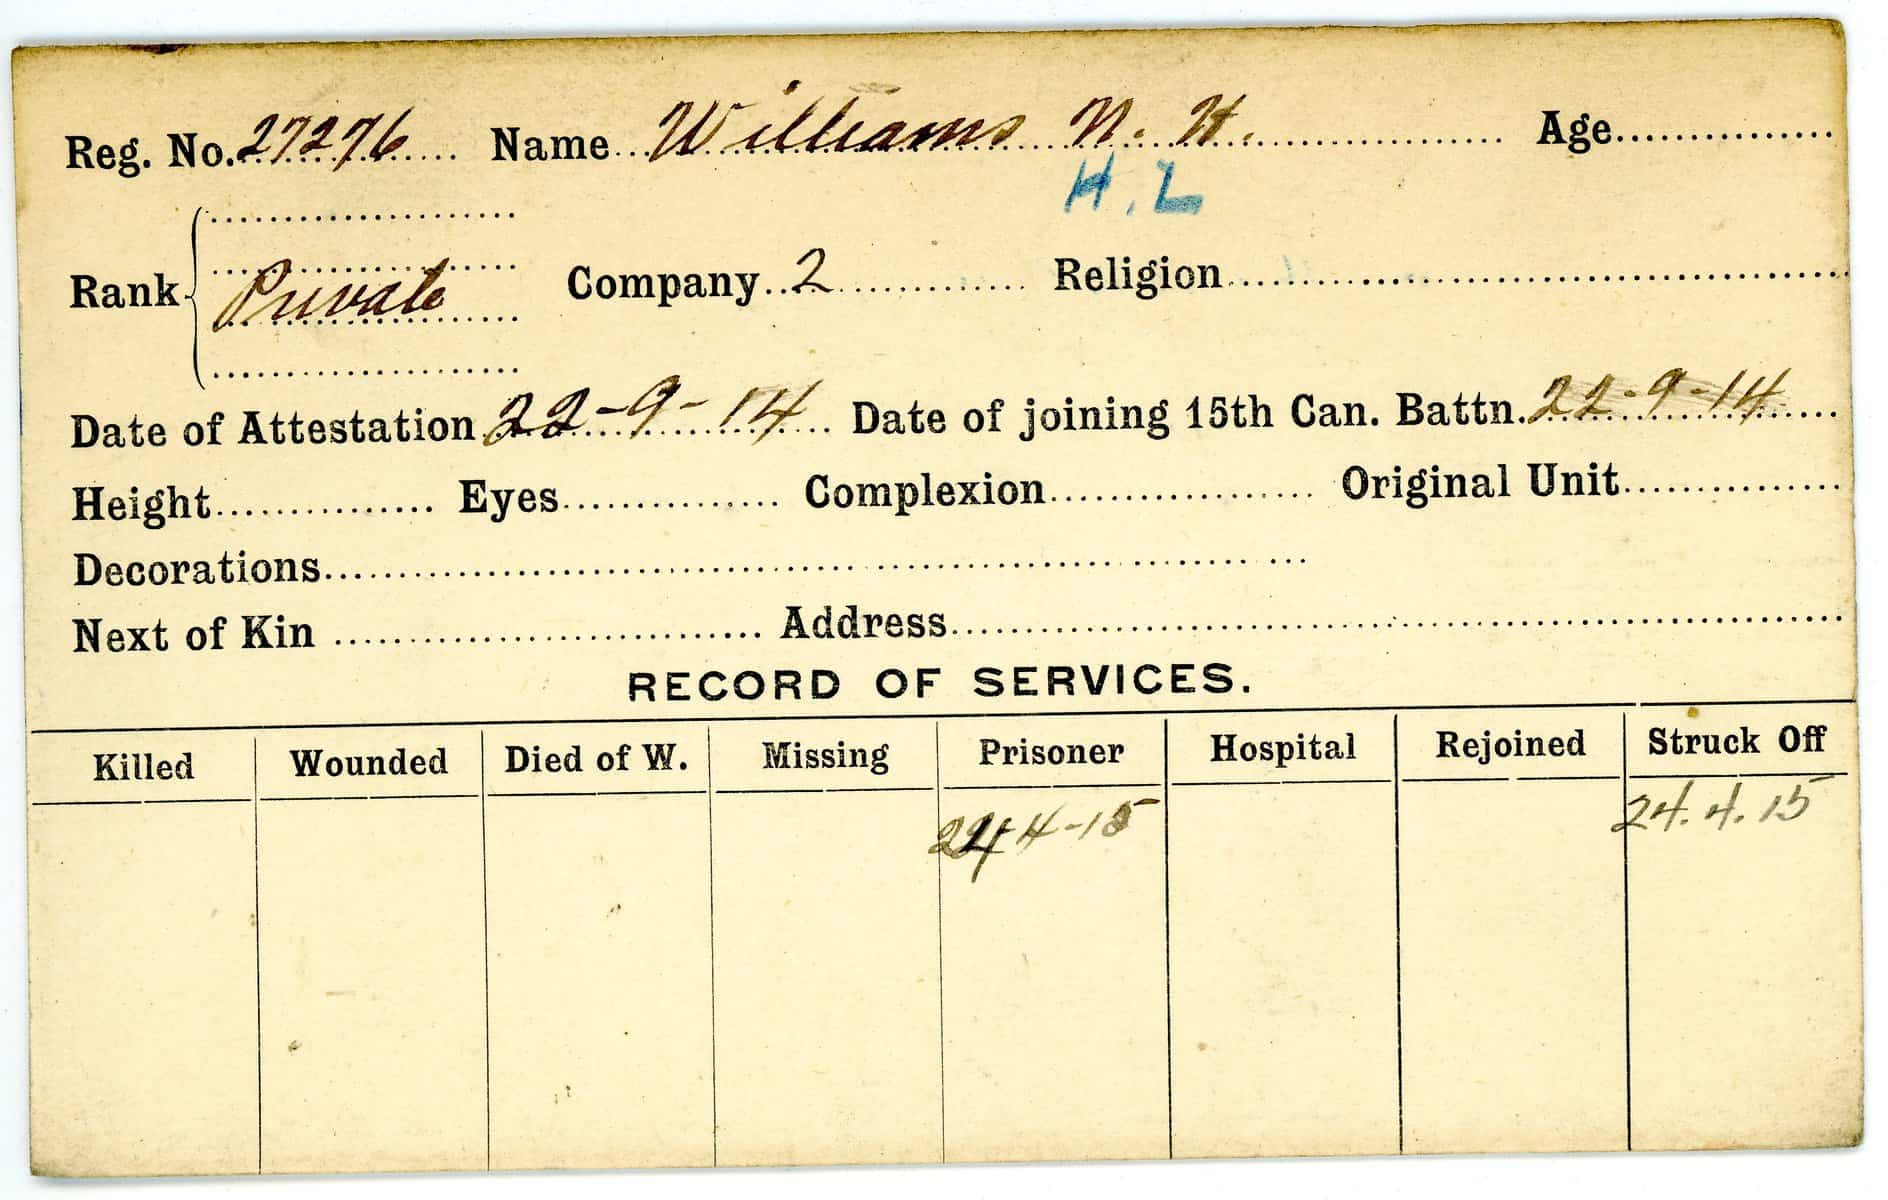 Reg. No. 27276 Name Williams N. H. Age
H. L
Rank Private Company 2 Religion
Date of Attestation 22-9-14 Date of joining 15th Can. Battn. 22-9-14
Height Eyes Complexion Original Unit
Decorations
Next of Kin Address
RECORD OF SERVICES.
Killed Wounded Died of W. Missing Prisoner Hospital Rejoined Struck Off
24-4-15 24.4.15